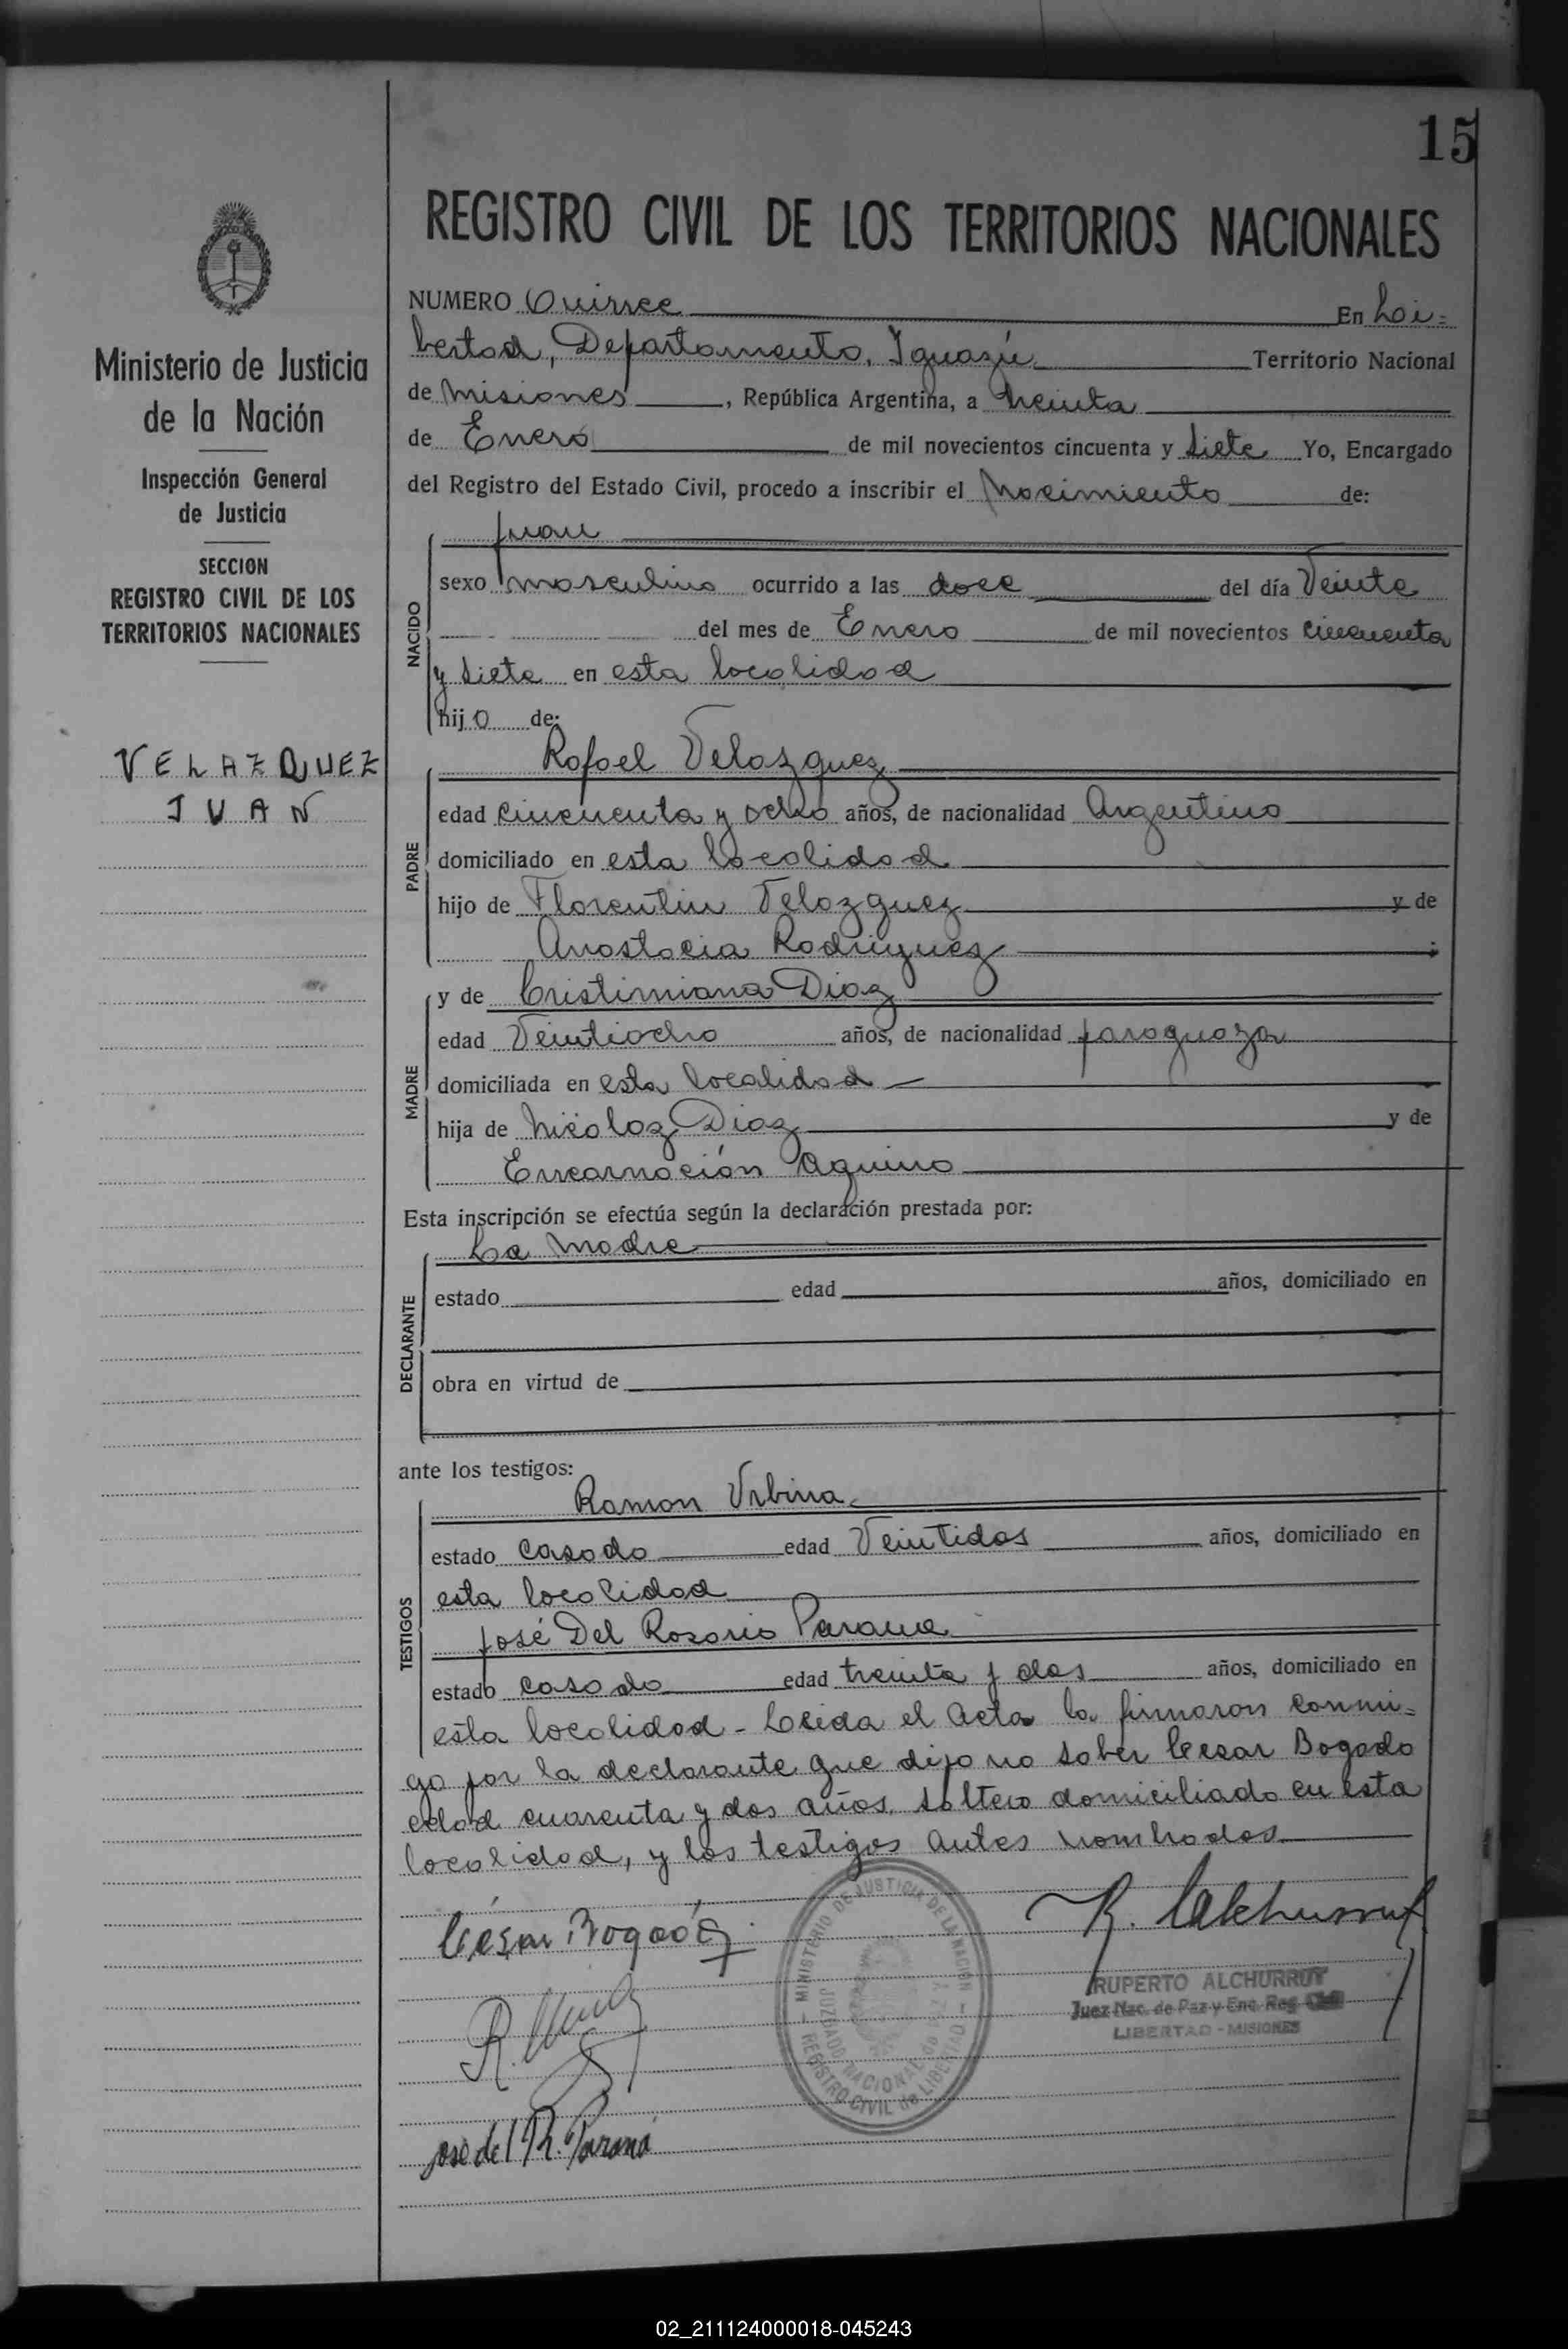 15
REGISTRO CIVIL DE LOS TERRITORIOS NACIONALES
Ministerio de Justicia
de la Nación
Inspección General
de Justicia
SECCION
REGISTRO CIVIL DE LOS
TERRITORIOS NACIONALES
VELAZQUEZ
JUAN
NUMERO Quince En Li=
bertad, Departamento, Iguazú Territorio Nacional
de Misiones, República Argentina, a treinta
de Enero de mil novecientos cincuenta y siete Yo, Encargado
del Registro del Estado Civil, procedo a inscribir el Nacimiento de:
NACIDO
Juan
sexo masculino ocurrido a las doce del día Veinte
del mes de Enero de mil novecientos cincuenta
y siete en esta localidad
hijo de:
PADRE
Rafael Velazquez
edad cincuenta y ocho años, de nacionalidad Argentino
domiciliado en esta localidad
hijo de Florentin Velazquez y de
Anastacia Rodriguez ;
MADRE
y de Cristimiana Diaz
edad Veintiocho años, de nacionalidad paraguaya
domiciliada en esta localidad
hija de Nicolaz Diaz y de
Encarnación Aquino
Esta inscripción se efectúa según la declaración prestada por:
DECLARANTE
La Madre
estado edad años, domiciliado en
obra en virtud de
ante los testigos:
TESTIGOS
Ramon Urbina
estado casado edad Veintidos años, domiciliado en
esta localidad
José Del Rosario Parana
estado casado edad treinta y dos años, domiciliado en
esta localidad - Leida el Acta la firmaron conmi=
go por la declarante que dijo no saber Cesar Bogado
edad cuarenta y dos años, soltero domiciliado en esta
localidad, y los testigos antes nombrados
César Bogado
R. Alchurrut
MINISTERIO DE JUSTICIA DE LA NACION
JUZGADO NACIONAL de PAZ Y
REGISTRO CIVIL de LIBERTAD
RUPERTO ALCHURRUT
Juez Nac. de Paz y Enc. Reg. Civil
LIBERTAD - MISIONES
José del R. Paraná
02_211124000018-045243